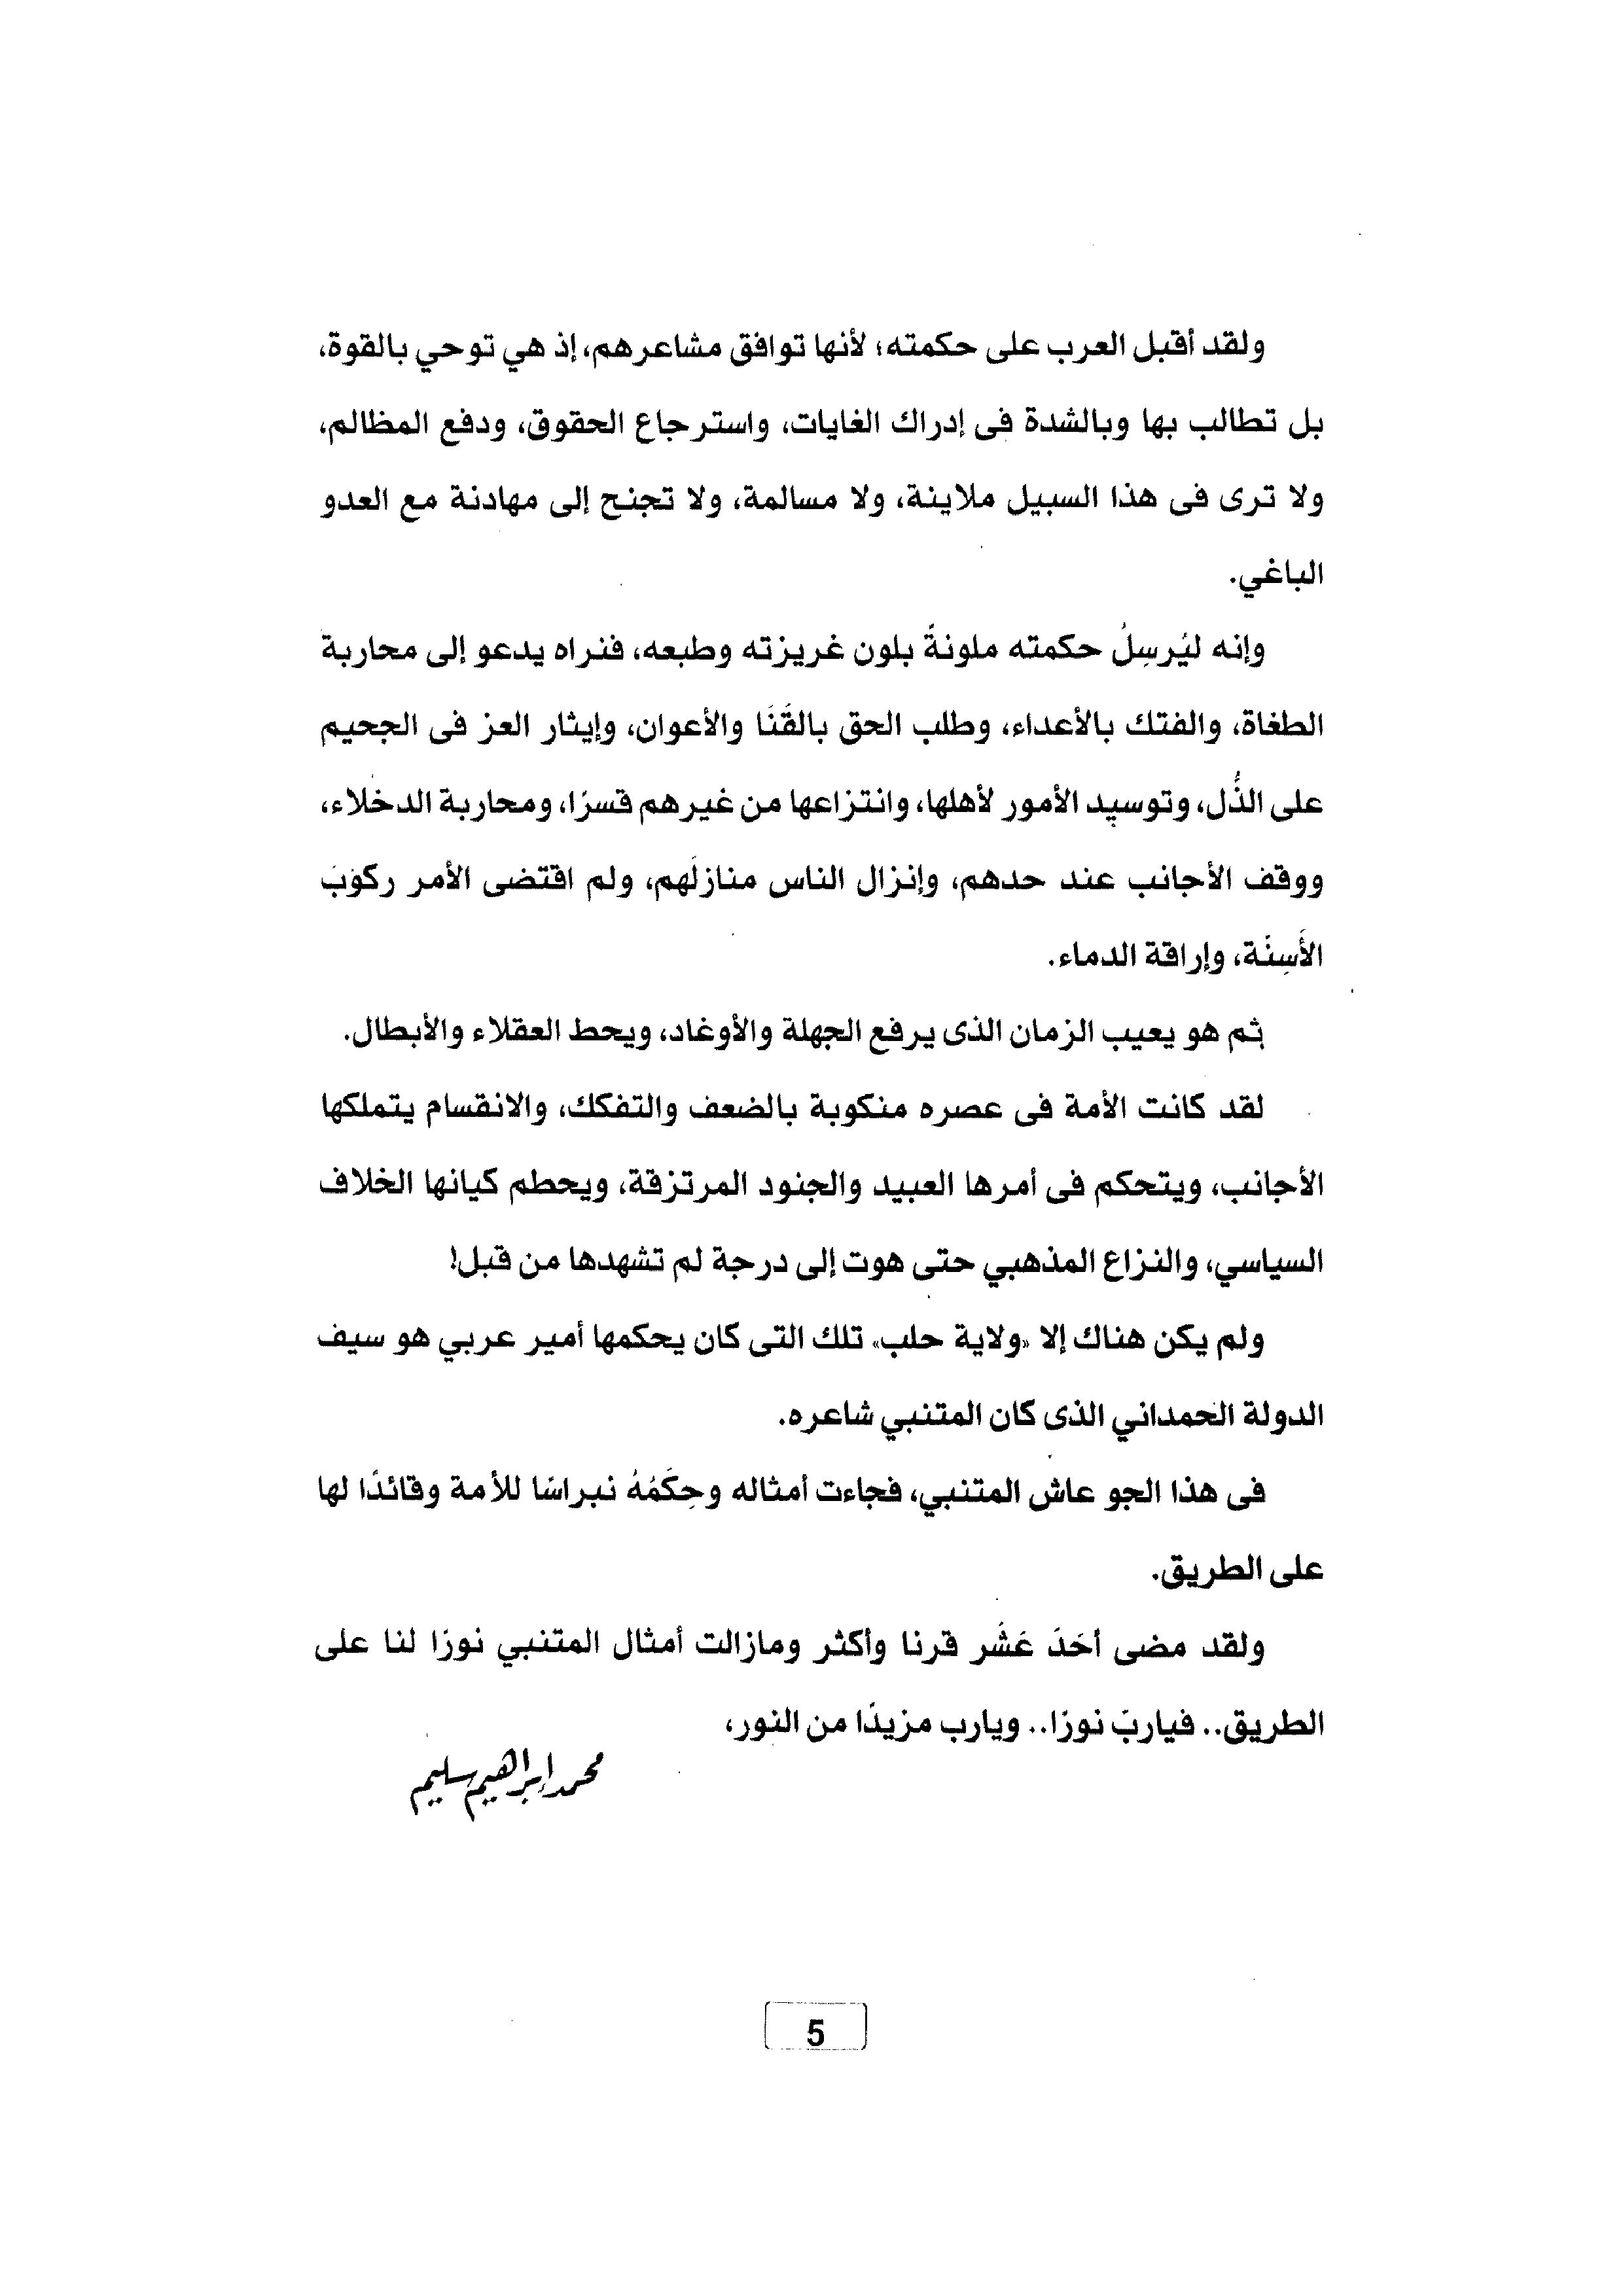 ولقد أقبل العرب على حكمته؛ لأنها توافق مشاعرهم، إذ هي توحي بالقوة،
بل تطالب بها وبالشدة فى إدراك الغايات، واسترجاع الحقوق، ودفع المظالم،
ولا ترى فى هذا السبيل ملاينة، ولا مسالمة، ولا تجنح إلى مهادنة مع العدو
الباغي.
وإنه ليُرسِلُ حكمته ملونةً بلون غريزته وطبعه، فنراه يدعو إلى محاربة
الطغاة، والفتك بالأعداء، وطلب الحق بالقَنَا والأعوان، وإيثار العز فى الجحيم
على الذُّل، وتوسيد الأمور لأهلها، وانتزاعها من غيرهم قسرًا، ومحاربة الدخلاء،
ووقف الأجانب عند حدهم، وإنزال الناس منازلَهم، ولم اقتضى الأمر ركوبَ
الأَسِنَّة، وإراقة الدماء.
ثم هو يعيب الزمان الذى يرفع الجهلة والأوغاد، ويحط العقلاء والأبطال.
لقد كانت الأمة فى عصره منكوبة بالضعف والتفكك، والانقسام يتملكها
الأجانب، ويتحكم فى أمرها العبيد والجنود المرتزقة، ويحطم كيانها الخلاف
السياسي، والنزاع المذهبي حتى هوت إلى درجة لم تشهدها من قبل!
ولم يكن هناك إلا «ولاية حلب» تلك التى كان يحكمها أمير عربي هو سيف
الدولة الحمداني الذى كان المتنبي شاعره.
فى هذا الجو عاش المتنبي، فجاءت أمثاله وحِكَمُهُ نبراسًا للأمة وقائدًا لها
على الطريق.
ولقد مضى أحَدَ عَشَر قرنا وأكثر ومازالت أمثال المتنبي نورًا لنا على
الطريق.. فياربّ نورًا.. ويارب مزيدًا من النور،
محمد إبراهيم سليم
5